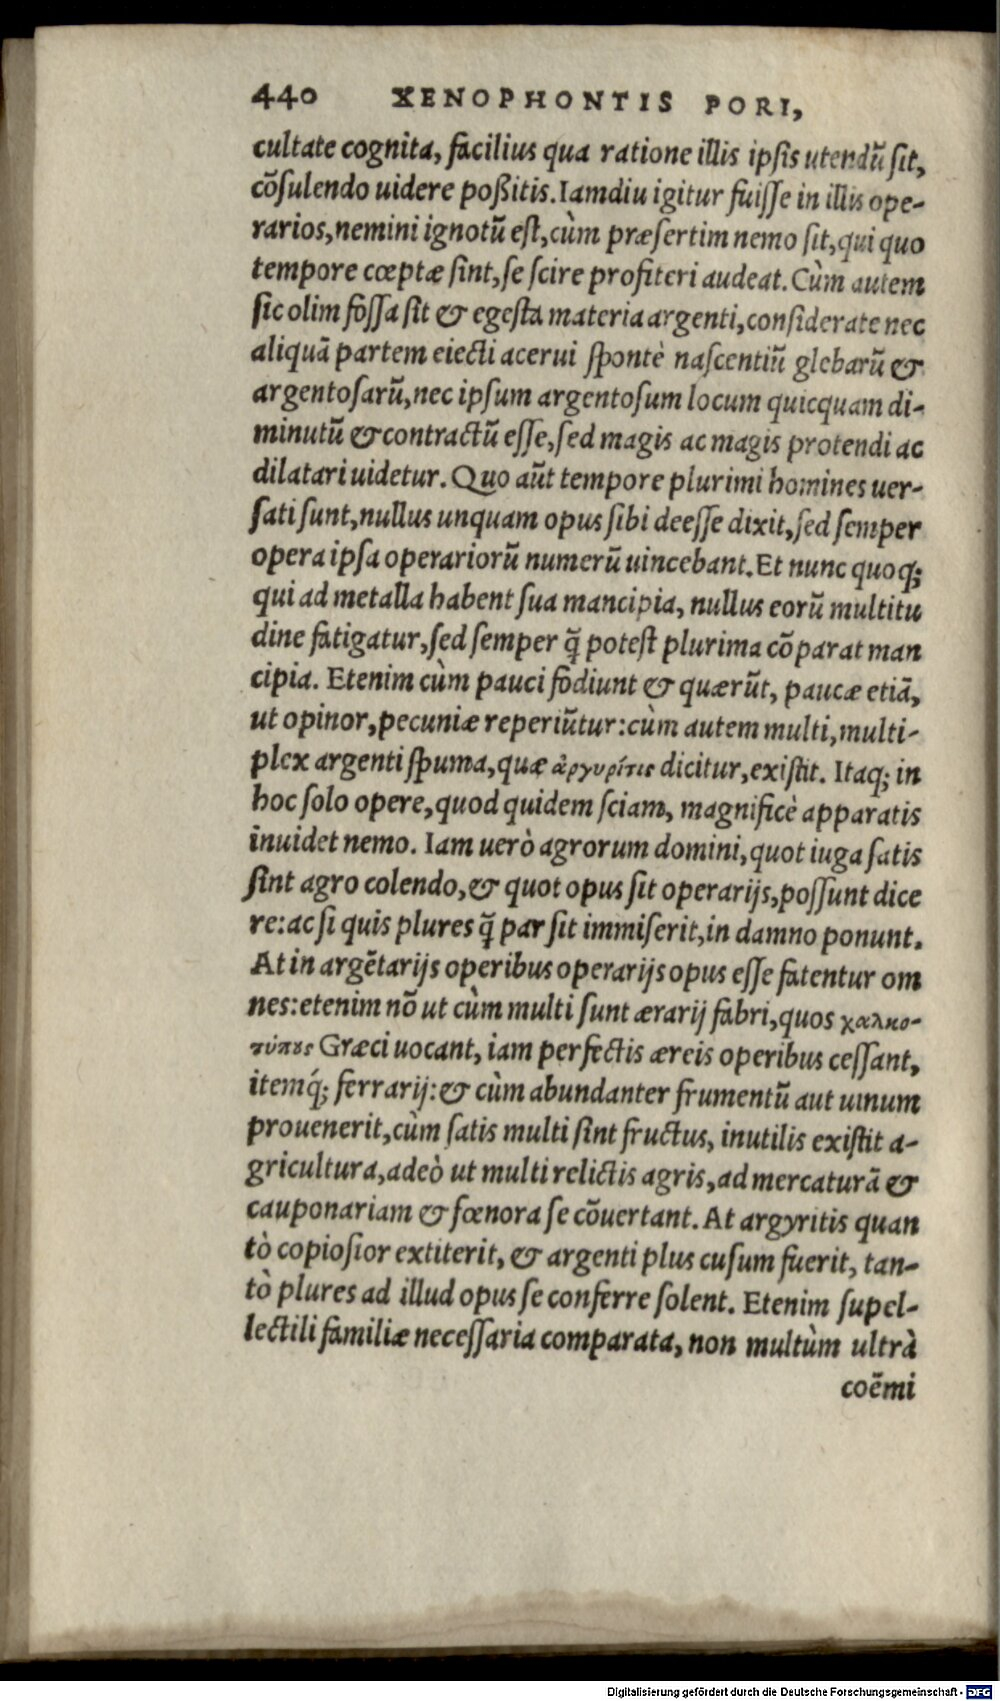 440 XENOPHONTIS PORI,
cultate cognita, facilius qua ratione illis ipsis utendũ sit,
cõsulendo uidere poßitis. Iamdiu igitur fuisse in illis ope-
rarios, nemini ignotũ est, cùm præsertim nemo sit, qui quo
tempore cœptæ sint, se scire profiteri audeat. Cùm autem
sic olim fossa sit & egesta materia argenti, considerate nec
aliquã partem eiecti acerui spontè nascentiũ glebarũ &
argentosarũ, nec ipsum argentosum locum quicquam di-
minutũ & contractũ esse, sed magis ac magis protendi ac
dilatari uidetur. Quo aũt tempore plurimi homines uer-
sati sunt, nullus unquam opus sibi deesse dixit, sed semper
opera ipsa operariorũ numerũ uincebant. Et nunc quoq;
qui ad metalla habent sua mancipia, nullus eorũ multitu
dine fatigatur, sed semper q̃ potest plurima cõparat man
cipia. Etenim cùm pauci fodiunt & quærũt, paucæ etiã,
ut opinor, pecuniæ reperiũtur: cùm autem multi, multi-
plex argenti spuma, quæ ἀργυρίτις dicitur, existit. Itaq; in
hoc solo opere, quod quidem sciam, magnificè apparatis
inuidet nemo. Iam uerò agrorum domini, quot iuga satis
sint agro colendo, & quot opus sit operarijs, possunt dice
re: ac si quis plures q̃ par sit immiserit, in damno ponunt.
At in argẽtarijs operibus operarijs opus esse fatentur om
nes: etenim nõ ut cùm multi sunt ærarij fabri, quos χαλκο-
τύπους Græci uocant, iam perfectis æreis operibus cessant,
itemq́; ferrarij: & cùm abundanter frumentũ aut uinum
prouenerit, cùm satis multi sint fructus, inutilis existit a-
gricultura, adeò ut multi relictis agris, ad mercaturã &
cauponariam & fœnora se cõuertant. At argyritis quan
tò copiosior extiterit, & argenti plus cusum fuerit, tan-
tò plures ad illud opus se conferre solent. Etenim supel-
lectili familiæ necessaria comparata, non multùm ultrà
coẽmi
Digitalisierung gefördert durch die Deutsche Forschungsgemeinschaft - DFG